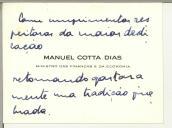 Com cumprimentos res
peitosos da maior dedi
cação
MANUEL COTTA DIAS
MINISTRO DAS FINANÇAS E DA ECONOMIA
retomando gostosa
mente uma tradição que
brada.